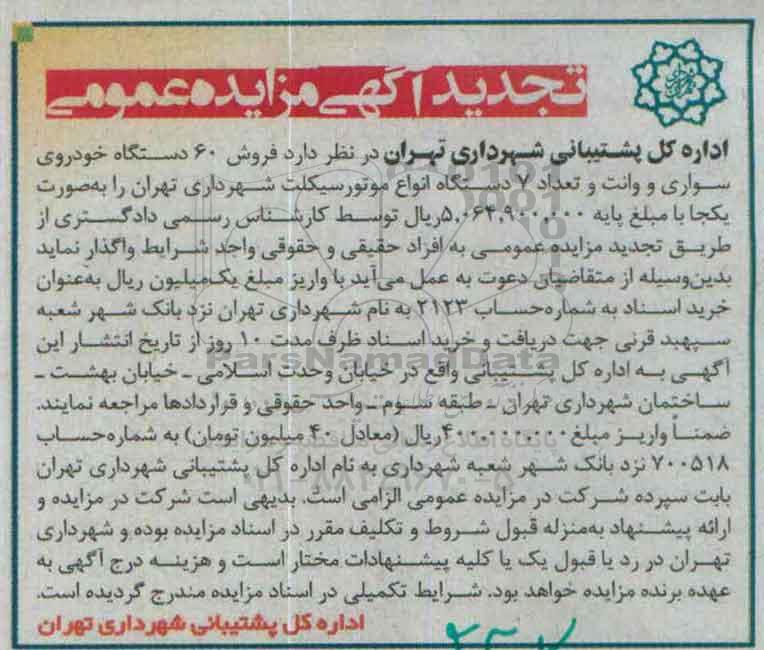 تجدید آگهی مزایده عمومی
اداره کل پشتیبانی شهرداری تهران در نظر دارد فروش ۶۰ دستگاه خودروی
سواری و وانت و تعداد ۷ دستگاه انواع موتورسیکلت شهرداری تهران را به‌صورت
یکجا با مبلغ پایه ۵,۰۶۴,۹۰۰,۰۰۰ریال توسط کارشناس رسمی دادگستری از
طریق تجدید مزایده عمومی به افراد حقیقی و حقوقی واجد شرایط واگذار نماید
بدین‌وسیله از متقاضیان دعوت به عمل می‌آید با واریز مبلغ یک‌میلیون ریال به‌عنوان
خرید اسناد به شماره‌حساب ۲۱۲۳ به نام شهرداری تهران نزد بانک شهر شعبه
سپهبد قرنی جهت دریافت و خرید اسناد ظرف مدت ۱۰ روز از تاریخ انتشار این
آگهی به اداره کل پشتیبانی واقع در خیابان وحدت اسلامی ـ خیابان بهشت ـ
ساختمان شهرداری تهران ـ طبقه سوم ـ واحد حقوقی و قراردادها مراجعه نمایند.
ضمناً واریز مبلغ ۴۰۰,۰۰۰,۰۰۰ریال (معادل ۴۰ میلیون تومان) به شماره‌حساب
۷۰۰۵۱۸ نزد بانک شهر شعبه شهرداری به نام اداره کل پشتیبانی شهرداری تهران
بابت سپرده شرکت در مزایده عمومی الزامی است. بدیهی است شرکت در مزایده و
ارائه پیشنهاد به‌منزله قبول شروط و تکلیف مقرر در اسناد مزایده بوده و شهرداری
تهران در رد یا قبول یک یا کلیه پیشنهادات مختار است و هزینه درج آگهی به
عهده برنده مزایده خواهد بود. شرایط تکمیلی در اسناد مزایده مندرج گردیده است.
اداره کل پشتیبانی شهرداری تهران
ParsNamadData